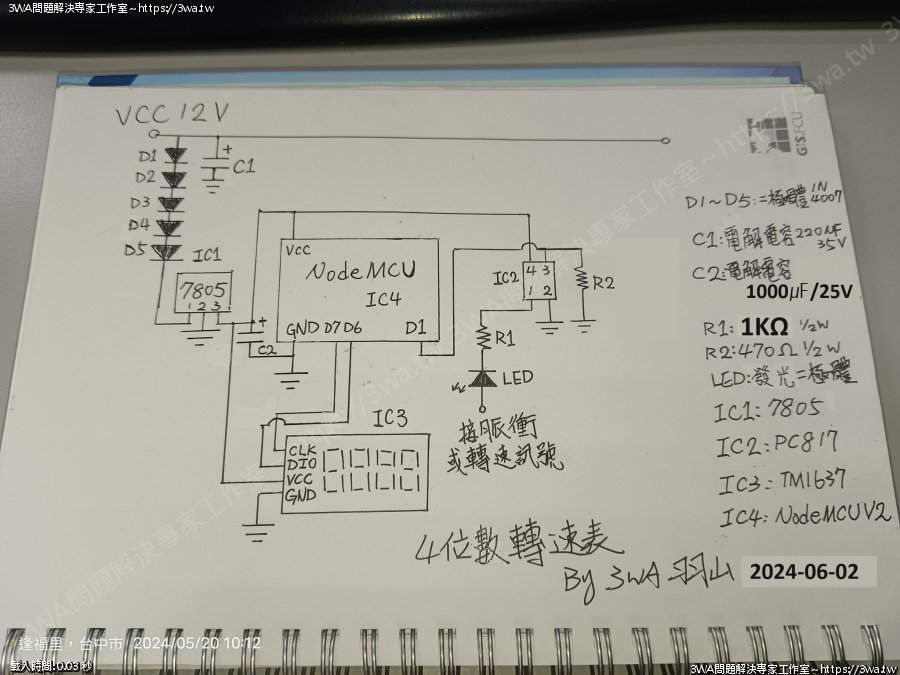 3WA問題解決專家工作室~https://3wa.tw
VCC 12V
D1
D2
D3
D4
D5
+
C1
IC1
7805
1 2 3
+
C2
VCC
NodeMCU
IC4
GND D7 D6 D1
IC2
4 3
1 2
R2
R1
LED
接脈衝
或轉速訊號
IC3
CLK
DIO
VCC
GND
GIS.FCU
D1~D5:二極體 1N4007
C1:電解電容220UF
35V
C2:電解電容
1000μF/25V
R1: 1KΩ 1/2W
R2:470Ω 1/2W
LED:發光二極體
IC1: 7805
IC2: PC817
IC3: TM1637
IC4: NodeMCUV2
4位數轉速表
By 3WA 羽山 2024-06-02
逢福里,台中市 2024/05/20 10:12
載入時間: 0.03 秒
3WA問題解決專家工作室~https://3wa.tw
3WA問題解決專家工作室~https://3wa.tw